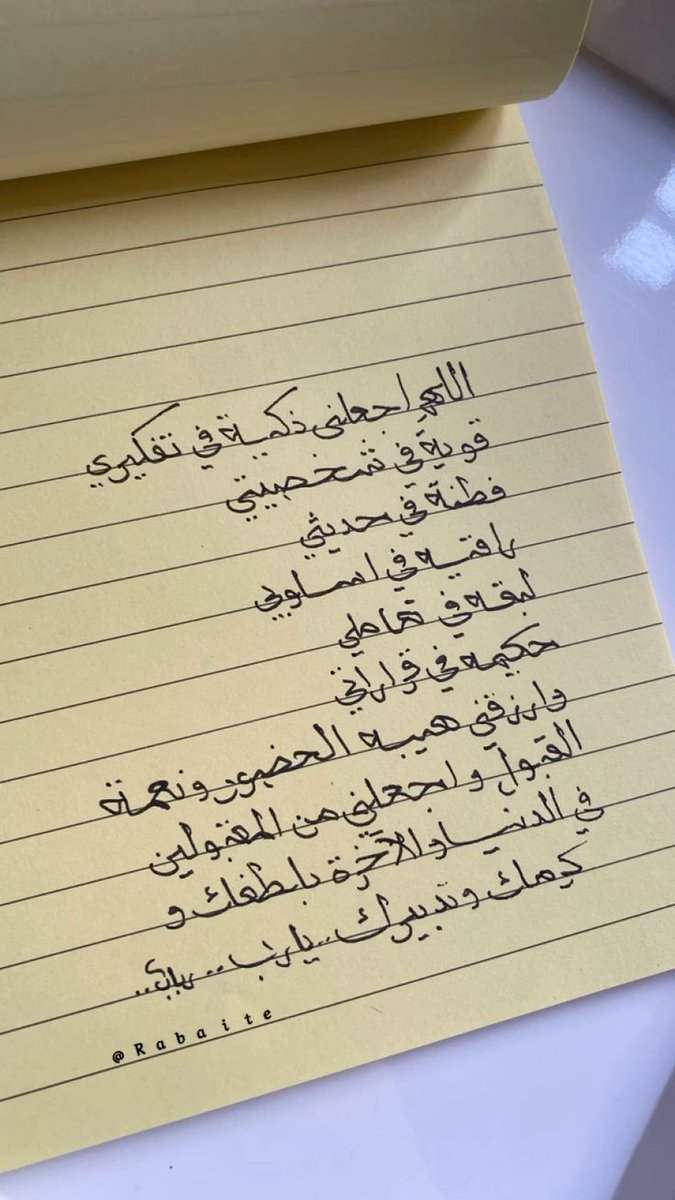 اللهم اجعلني ذكية في تفكيري
قوية في شخصيتي
فطنة في حديثي
راقيه في اسلوبي
لبقه في تعاملي
حكيمه في قراراتي
وارزقني هيبه الحضور ونعمة
القبول واجعلني من المقبولين
في الدنيا والآخرة بلطفك و
كرمك وتدبيرك.. يارب..
@Rabaite